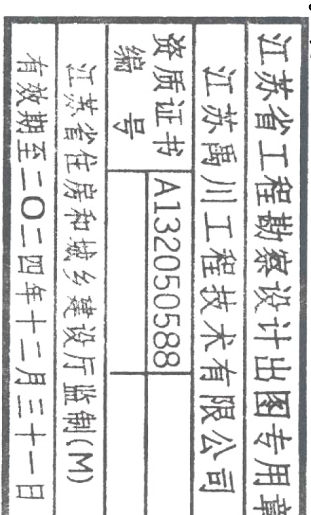 江苏省工程勘察设计出图专用章
江苏禹川工程技术有限公司
资质证书
编号
A132050588
江苏省住房和城乡建设厅监制(M)
有效期至二〇二四年十二月三十一日